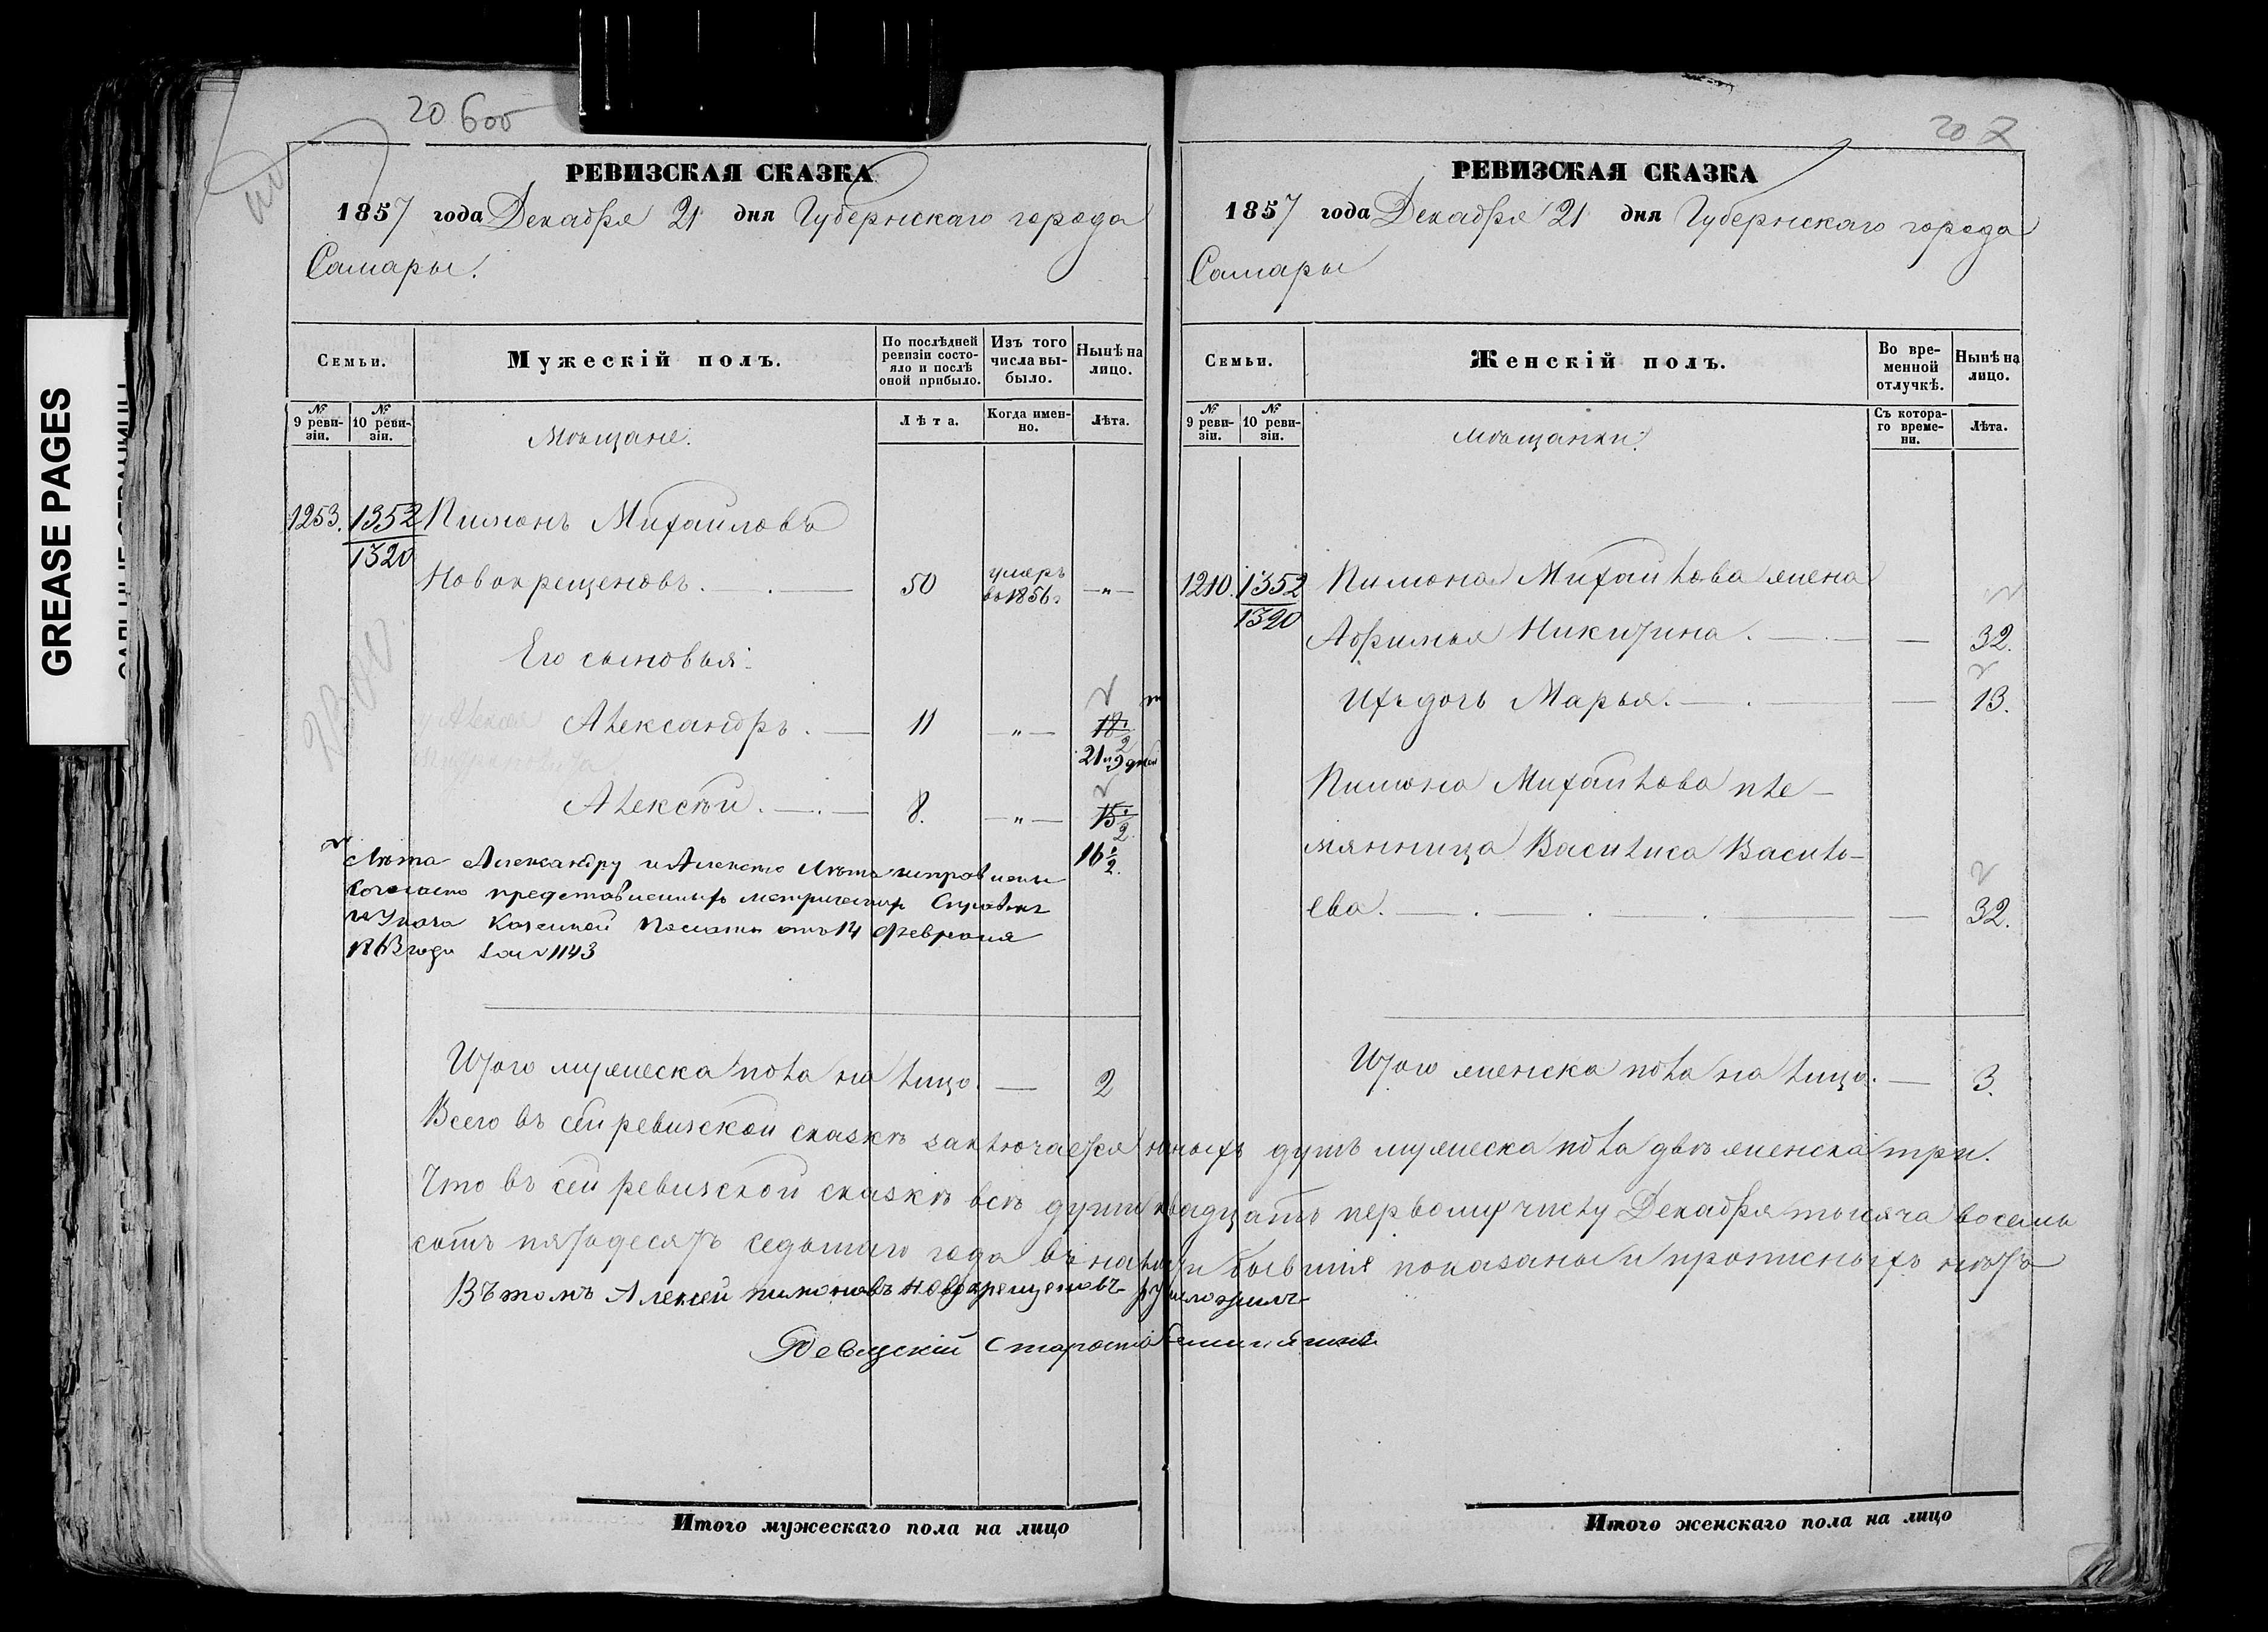 GREASE PAGES
20 600
РЕВИЗСКАЯ СКАЗКА
1857 года Декабря 21 дня Губернскаго города
Самары.
Семьи.
Мужескій полъ.
По послѣдней ревизіи состояло и послѣ оной прибыло.
Изъ того числа выбыло.
Нынѣ на лицо.
№ 9 ревизіи.
№ 10 ревизіи.
Мѣщане.
Лѣта.
Когда именно.
Лѣта.
1253. 1352 Пимонъ Михайловъ
1320
Новокрещеновъ. 50 умеръ въ 1856 г. — " —
Его сыновья:
Александръ. 11 — " — 18 1/2
21 и 9 дней
Алексѣй. 8. — " — 15 1/2
16 1/2.
Лѣта Александру и Алексѣю Лѣта исправлены
согласно представленныхъ метрическихъ Справокъ
и Указа Казенной Палаты отъ 14 Февраля
1863 года за № 1143
Итого мужеска пола на лицо. — 2
20 7
РЕВИЗСКАЯ СКАЗКА
1857 года Декабря 21 дня Губернскаго города
Самары
Семьи.
Женскій полъ.
Во временной отлучкѣ.
Нынѣ на лицо.
№ 9 ревизіи.
№ 10 ревизіи.
мѣщанки.
Съ котораго времени.
Лѣта.
1210. 1352 Пимона Михайлова жена
1320
Афимья Никитина. — 32.
Ихъ дочь Марья. — 13.
Пимона Михайлова пле-
мянница Василиса Василь-
ева. — 32.
Итого женска пола на лицо. — 3.
Всего въ сей ревизской сказкѣ заключается юныхъ душъ мужеска пола двѣ женска три.
Что въ сей ревизской сказкѣ всѣ души двадцать первому числу Декабря тысяча восемь
сотъ пятьдесятъ седьмаго года въ наличіи бывшія показаны и прописныхъ нѣтъ
Въ томъ Алексей пимоновъ Новокрещеновъ руку приложилъ
Ревизскій Староста
Итого мужескаго пола на лицо
Итого женскаго пола на лицо